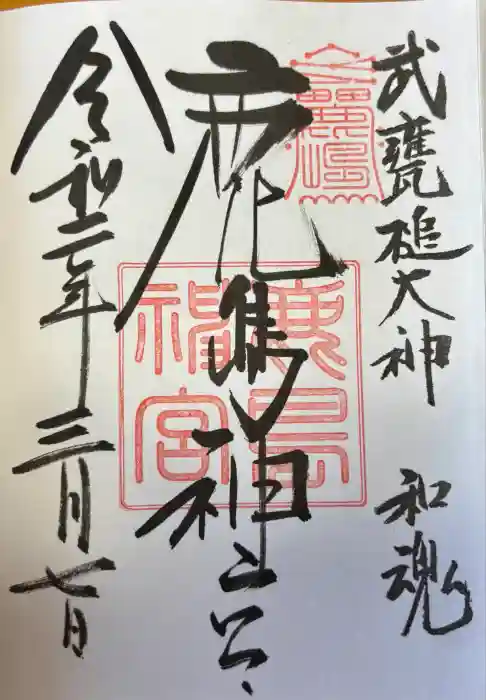 武甕槌大神　和魂
鹿島神宮
鹿島
神宮
令和二年三月七日